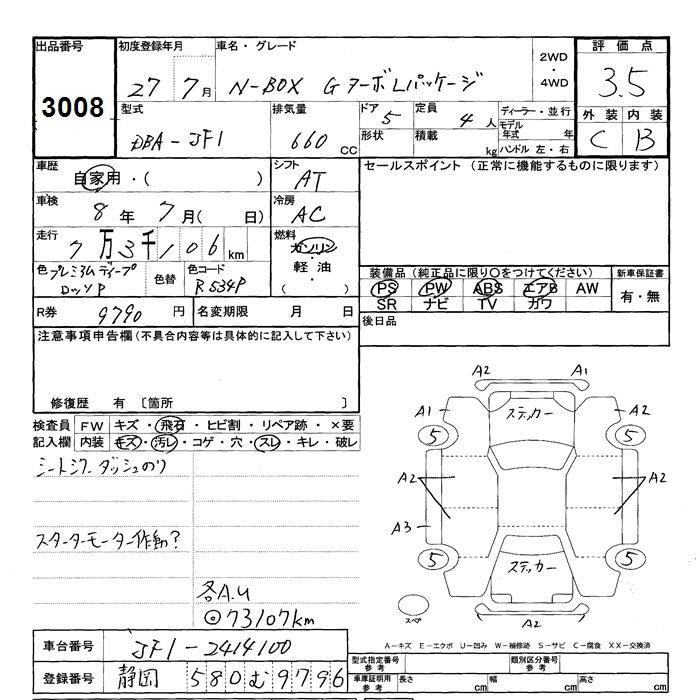 出品番号 初度登録年月 車名・グレード 2WD・4WD 評価点
3008 27 7月 N-BOX G ターボLパッケージ 3.5
型式 排気量 ドア 5 定員 4人 ディーラー・並行 外装 内装
DBA-JF1 660 CC 形状 積載 kg モデル年式 年 C B
ハンドル 左・右
車歴 自家用・( ) シフト AT セールスポイント (正常に機能するものに限ります)
車検 8年 7月( 日) 冷房 AC
走行 7万3千106km 燃料 ガソリン・軽油・( )
色 プレミアムディープ 色替 色コード R534P 装備品 (純正品に限り○をつけてください) 新車保証書
PS PW ABS エアB AW 有・無
SR ナビ TV カワ
R券 9790円 名変期限 月 日 後日品
注意事項申告欄 (不具合内容等は具体的に記入して下さい)
修復歴 有 〔箇所 〕
検査員 FW キズ・飛石・ヒビ割・リペア跡・×要
記入欄 内装 キズ・汚レ・コゲ・穴・スレ・キレ・破レ
スターターモーター作動?
各A.U
◎73107km
A2 A1
A1 ステッカー A2
5 5
A2 A2
A3
5 ステッカー 5
スペア A2
A-キズ E-エクボ U-凹み W-補修跡 S-サビ C-腐食 XX-交換済
車台番号 JF1-2414100 型式指定番号 参考 類別区分番号 参考
登録番号 静岡 580む9796 車庫証明用 参考 長さ cm 幅 cm 高さ cm